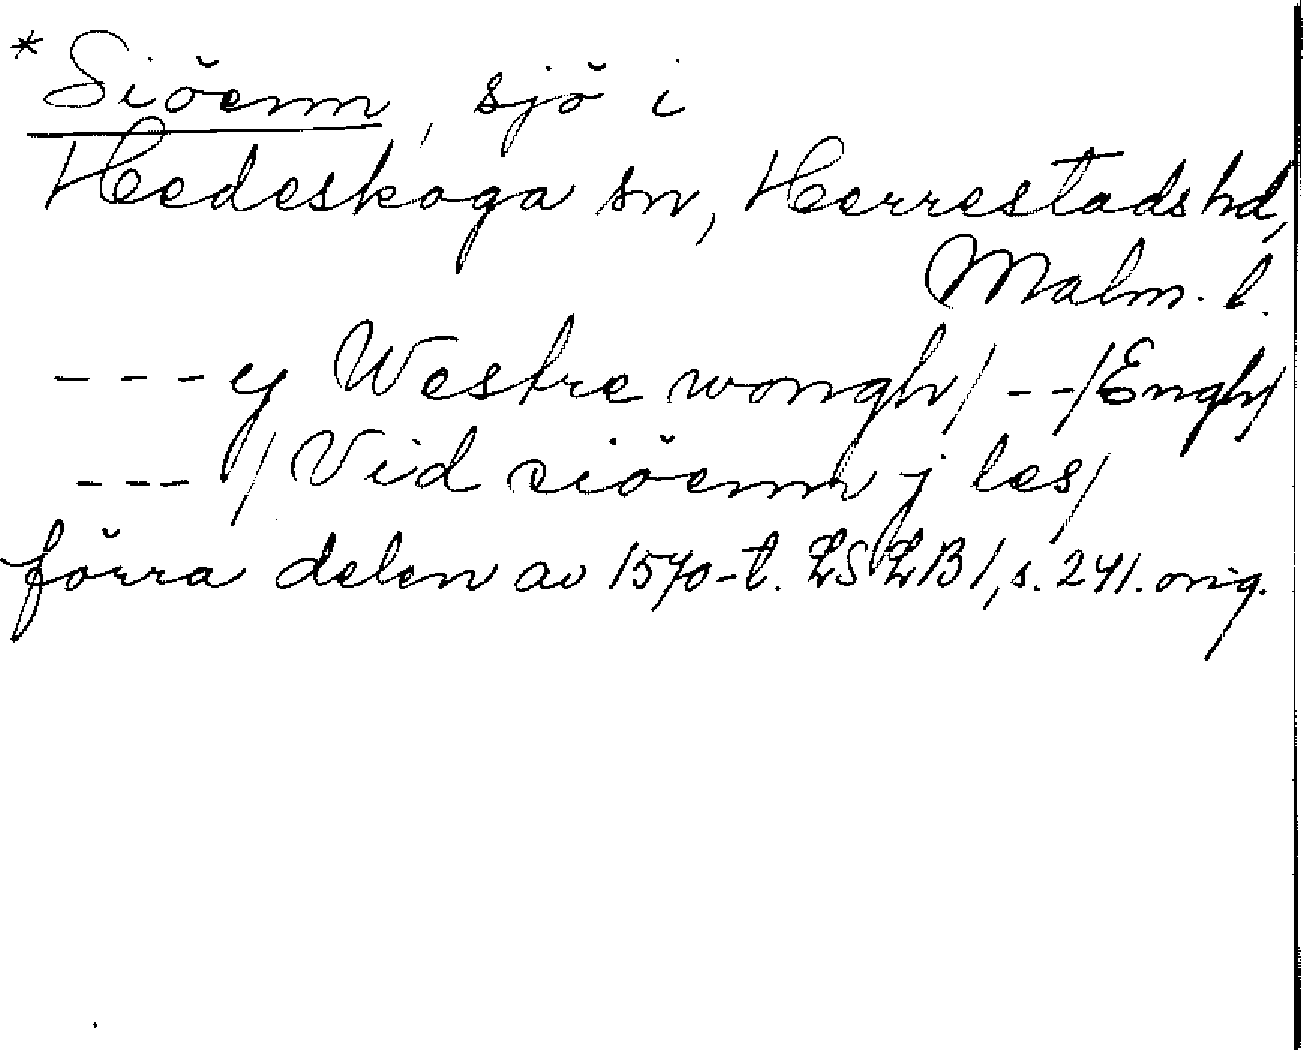 * Siöenn, sjö i
Hedeskoga sn, Herrestads hd,
Malm. l.
---y Westre wongh/ --/Engh/
--- / Vid siöenn j les/
förra delen av 1570-t. LSLB1, s. 241. orig.